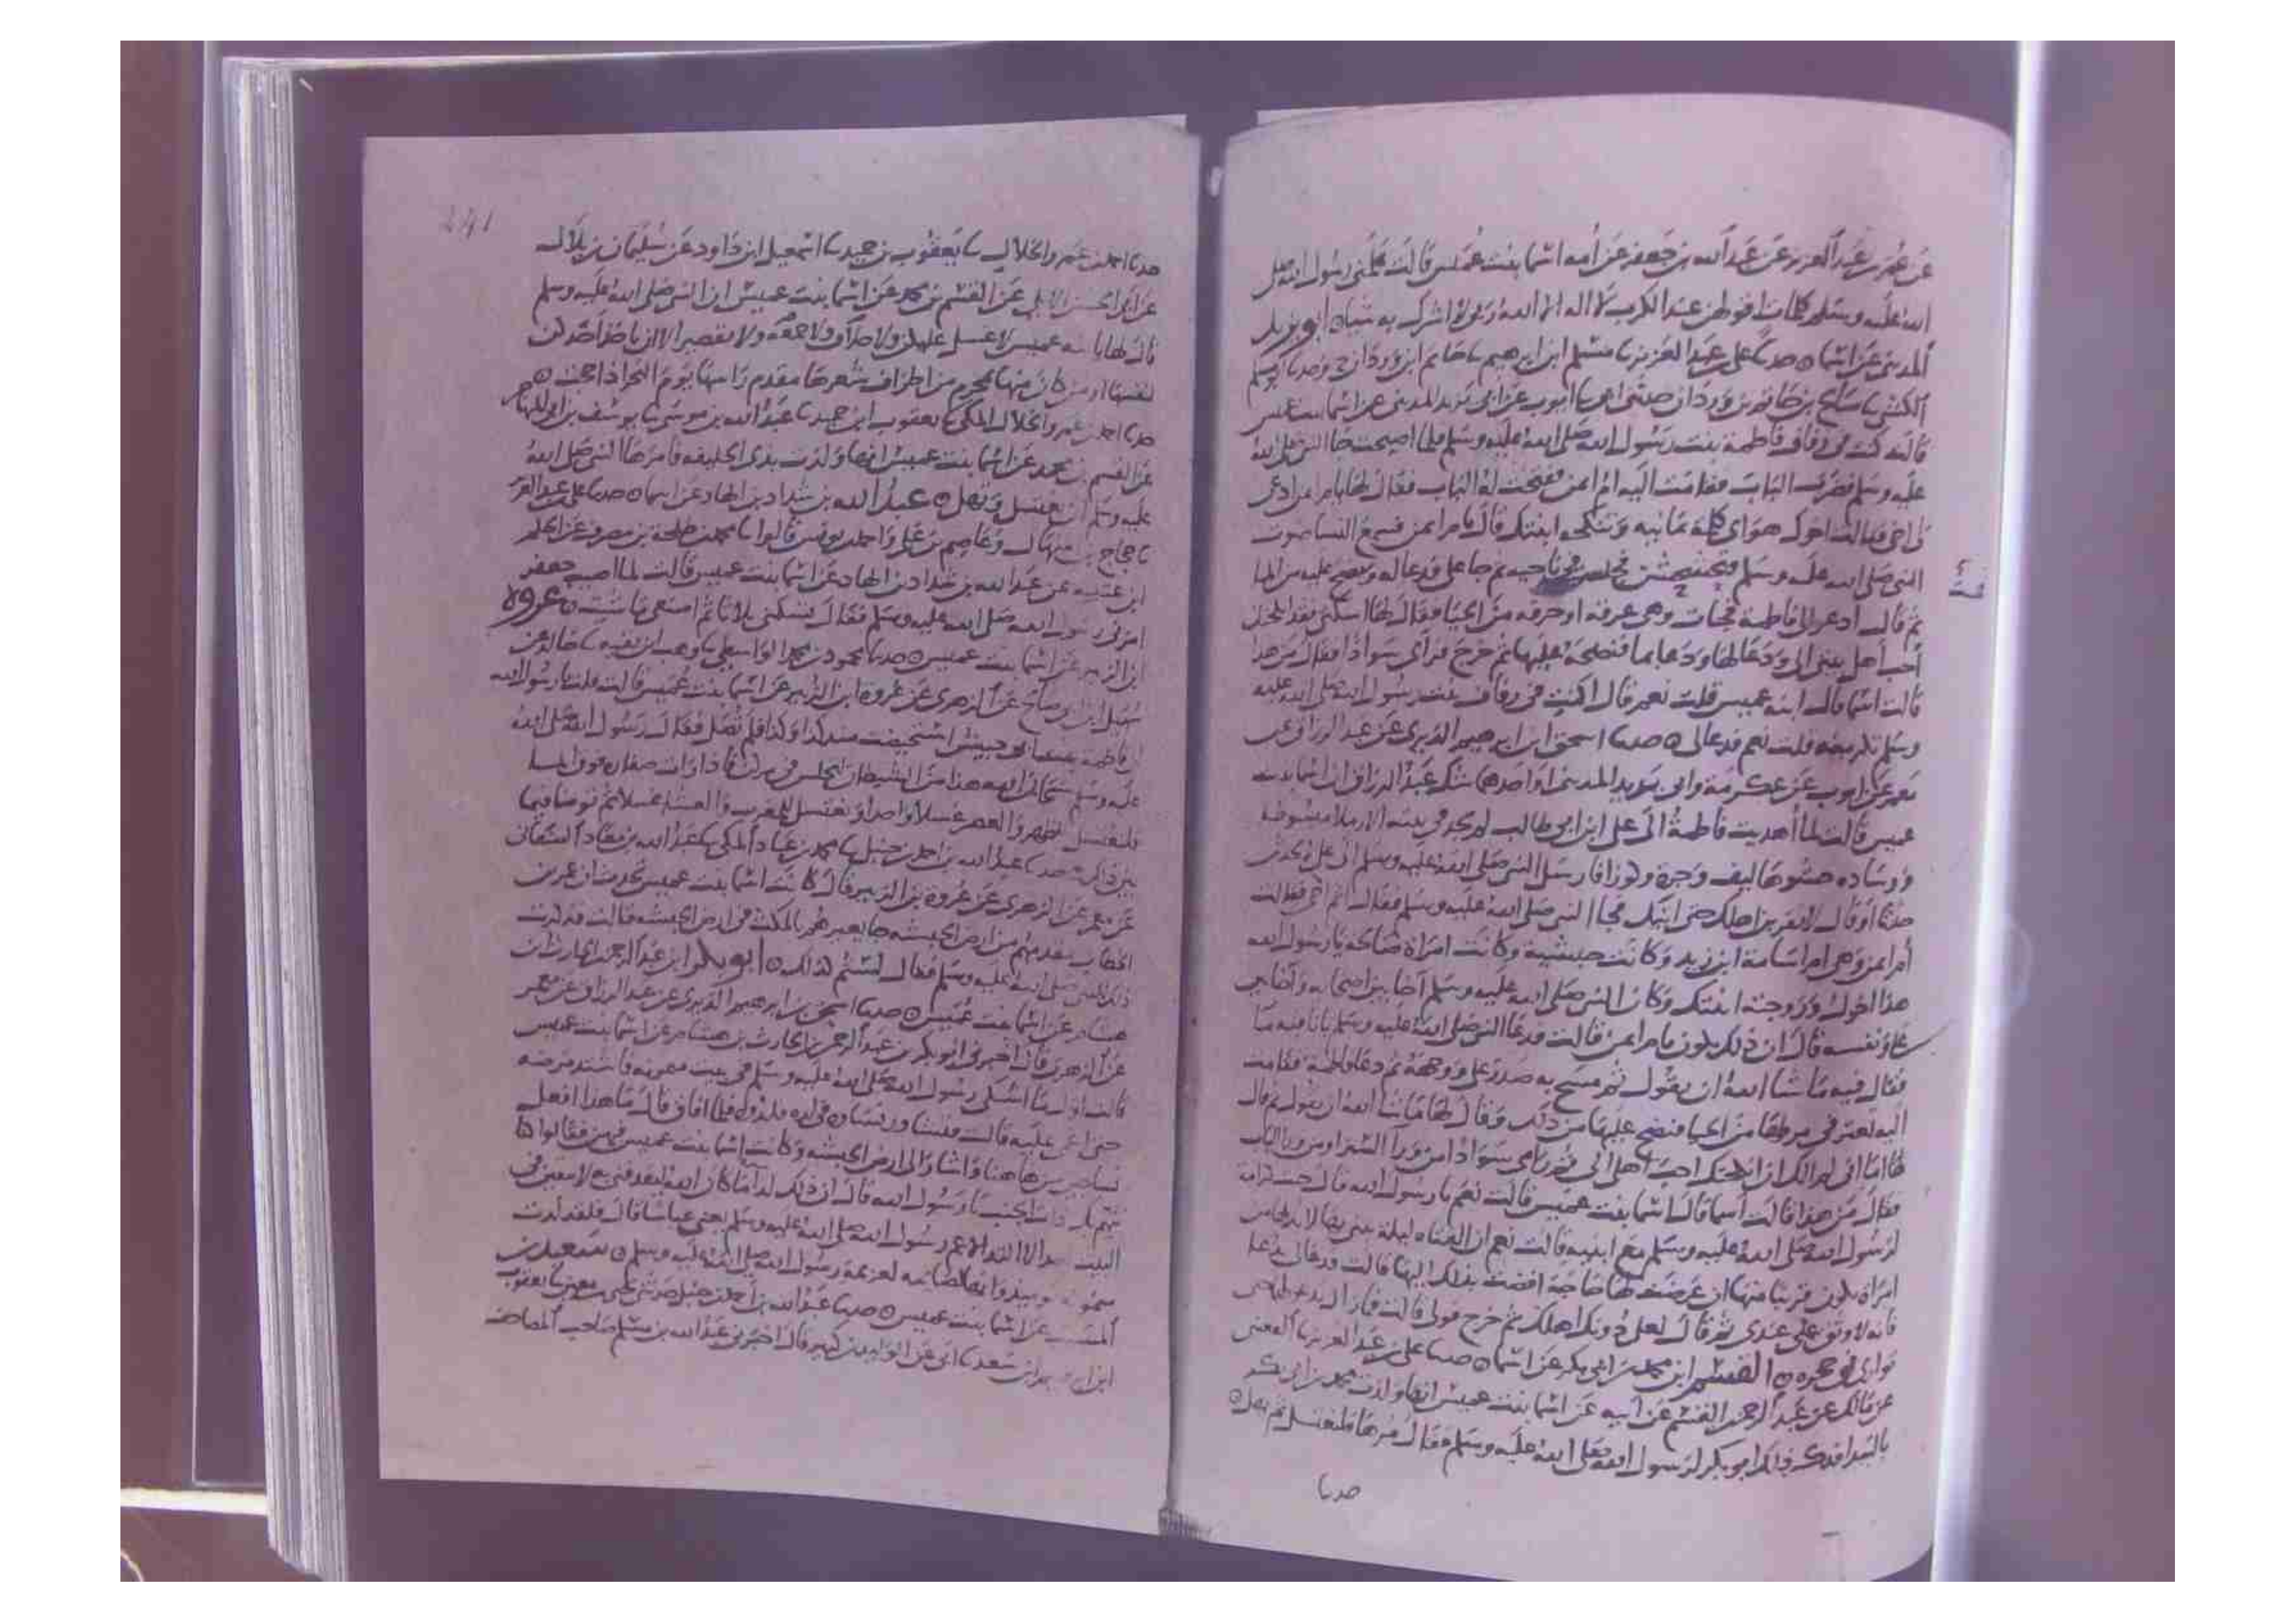 عن عمر بن عبد العزيز عن عبد الله بن جعفر عن أمه اسما بنت عميس قالت علمني رسول الله صلى
الله عليه وسلم كلمات اقولهن عند الكرب لا اله الا الله ربي لا اشرك به شيا ابو يزيد
المديني عن اسما حدثنا علي بن عبد العزيز نا مسلم ابن ابرهيم نا حاتم ابن وردان ح وحدثنا ابو مسلم
الكشي نا صالح بن حاتم بن وردان حدثني ابي نا ايوب عن ابي يزيد المديني عن اسما بنت عميس
قالت كنت في زفاف فاطمة بنت رسول الله صلى الله عليه وسلم فلما اصبحت جا النبي صلى الله
عليه وسلم فضرب الباب فقامت اليه ام ايمن ففتحت له الباب فقال لها يا ام ايمن ادعي
لي اخي فقالت اخوك هو اي كلمة يمانية وتنكحه ابنتك قال يا م ايمن فسمع النسا صوت
النبي صلى الله عليه وسلم فجلس في ناحية ثم جا علي فدعا له ونضح عليه من الما
ثم قال ادعو لي فاطمة فجات وهي عرقة او حزقة من الحيا فقال لها اسكني فقد انكحتك
أحب أهل بيتي الي ودعا لها ودعا بما فنضحه عليها ثم خرج فرأى سوادا فقال من هذا
قالت اسما قال ابنة عميس قلت نعم قال اكنت في زفاف بنت رسول الله صلى الله عليه
وسلم تكرمينه قلت نعم فدعا لي حدثنا اسحق ابن ابرهيم الدبري عن عبد الرزاق عن
معمر عن ايوب عن عكرمة وابي يزيد المديني او احدهما شك عبد الرزاق ان اسما بنت
عميس قالت لما أهديت فاطمة الى علي ابن ابي طالب لم يجد في بيته الا رملا مبسوطا
ووسادة حشوها ليف وجرة وكوزا فارسل النبي صلى الله عليه وسلم الى علي لا تحدثن
حدثا او قال لا تقربن اهلك حتى اتيك فجا النبي صلى الله عليه وسلم فقال اثم اخي فقالت
أم ايمن وهي ام اسامة ابن زيد وكانت حبشية وكانت امراة صالحة يا رسول الله
هذا اخوك وزوجته ابنتك وكان النبي صلى الله عليه وسلم آخا بين اصحابه وآخا بين
علي ونفسه قال ان ذلك يكون يا م ايمن قالت فدعا النبي صلى الله عليه وسلم باناء فيه ما
فقال فيه ما شا الله ان يقول ثم مسح به صدر علي ووجهه ثم دعا فاطمة فقامت
اليه تعثر في مرطها من الحيا فنضح عليها من ذلك وقال لها ما شا الله ان يقول ثم قال
لها اما اني لم آلك ان انكحتك احب اهلي الي ثم راى سوادا من ورا الستر او من ورا الباب
فقال من هذا قالت أسما قال اسما بنت عميس قالت نعم يا رسول الله قال جئت كرامة
لرسول الله صلى الله عليه وسلم مع ابنته قالت نعم ان الفتاة ليلة يبنى بها لا بد لها من
امراة تكون قريبا منها ان عرضت لها حاجة افضت بذلك اليها قالت فدعا لي بدعا
فانه لاوثق عملي عندي ثم قال لعلي دونك اهلك ثم خرج فولى قالت فما زال يدعو لهما حتى
توارى في حجره القسم ابن محمد بن ابي بكر عن اسما حدثنا علي بن عبد العزيز نا القعنبي
عن مالك عن عبد الرحمن بن القسم عن أبيه عن اسما بنت عميس انها ولدت محمد بن ابي بكر
بالبيدا فذكر ذلك ابو بكر لرسول الله صلى الله عليه وسلم فقال مرها فلتغتسل ثم تهل
حدثنا
حدثنا احمد بن عمرو الخلال نا يعقوب بن حميد نا اسمعيل ابن داود عن سليمان بن بلال
عن ابي الحسن الايلي عن القسم بن محمد عن اسما بنت عميس ان النبي صلى الله عليه وسلم
حدثنا احمد بن عمرو الخلال المكي نا يعقوب ابن حميد نا عبد الله بن موسى نا يوسف بن
عن القسم بن محمد عن اسما بنت عميس انها ولدت بذي الحليفة فامرها النبي صلى الله
عليه وسلم ان تغتسل وتهل عبد الله بن شداد بن الهاد عن اسما حدثنا علي بن عبد العزيز
نا حجاج بن منهال وعاصم بن علي واحمد بن يونس قالوا نا محمد بن طلحة بن مصرف عن الحكم
ابن عتيبة عن عبد الله بن شداد بن الهاد عن اسما بنت عميس قالت لما اصيب جعفر
امرني رسول الله صلى الله عليه وسلم فقال تسكني ثلاثا ثم اصنعي ما شئت عروة
ابن الزبير عن اسما بنت عميس حدثنا محمود بن محمد الواسطي نا وهب ابن بقية نا خالد عن
سهيل ابن ابي صالح عن الزهري عن عروة ابن الزبير عن اسما بنت عميس قالت قلت يا رسول الله
ان فاطمة بنت ابي حبيش استحيضت منذ كذا وكذا فلم تصل فقال رسول الله صلى الله
عليه وسلم سبحان الله هذا من الشيطان لتجلس في مركن فاذا رات صفارة فوق الما
فلتغتسل للظهر والعصر غسلا واحدا وتغتسل للمغرب والعشا غسلا ثم توضا فيما
بين ذلك حدثنا عبد الله بن احمد بن حنبل نا محمد بن عباد المكي نا عبد الله بن معاذ الصنعاني
عن معمر عن الزهري عن عروة بن الزبير قال كانت اسما بنت عميس تحدث ان عمر بن
ذلك للنبي صلى الله عليه وسلم فقال لستم كذلك ابو بكر ابن عبد الرحمن الحارث ابن
هشام عن اسما بنت عميس حدثنا اسحق بن ابرهيم الدبري عن عبد الرزاق عن معمر
عن الزهري قال اخبرني ابو بكر بن عبد الرحمن بن الحارث بن هشام عن اسما بنت عميس
قالت اول ما اشتكى رسول الله صلى الله عليه وسلم في بيت ميمونة فاشتد مرضه
حتى اغمي عليه قالت فتشاور نساؤه في لده فلدوه فلما افاق قال ما هذا افعل
نسا جئن من هاهنا واشار الى ارض الحبشة وكانت اسما بنت عميس فيهن فقالوا كنا
نتهم بك ذات الجنب يا رسول الله قال ان ذلك لدا ما كان الله ليقذفني به لا يبقين في
البيت احد الا التد الا عم رسول الله صلى الله عليه وسلم يعني عباسا قال فلقد التدت
ميمونة يوميذ وانها لصائمة لعزيمة رسول الله صلى الله عليه وسلم سعيد بن
المسيب عن اسما بنت عميس حدثنا عبد الله بن احمد بن حنبل حدثني يحيى بن معين نا يعقوب
ابن ابرهيم بن سعد نا ابي عن الوليد بن كثير قال اخبرني عبد الله بن مسلم صاحب المصاحف